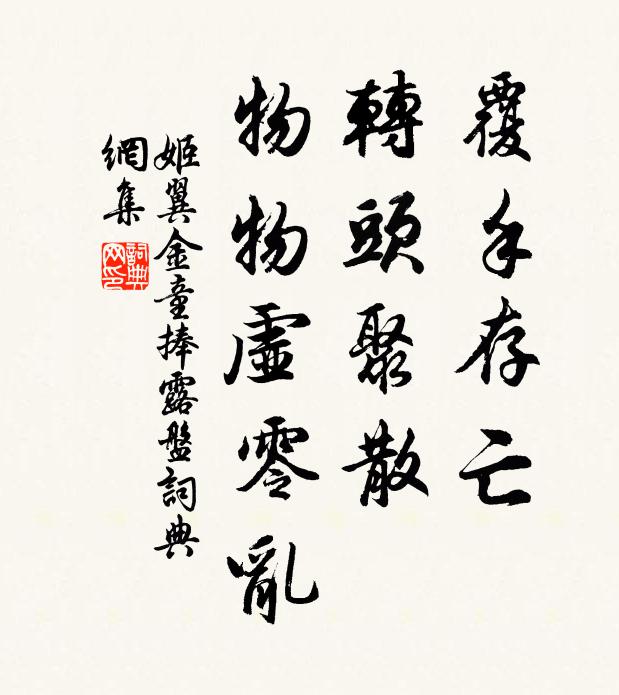 覆手存亡
轉頭聚散
物物虛零亂
姬翼金童捧露盤詞典
網集
詞典網印